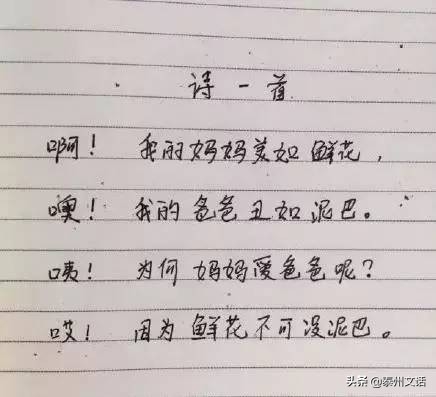 诗一首
啊！ 我的妈妈美如鲜花，
噢！ 我的爸爸丑如泥巴。
咦！ 为何妈妈爱爸爸呢？
哎！ 因为鲜花不可没泥巴。
头条@泰州文话